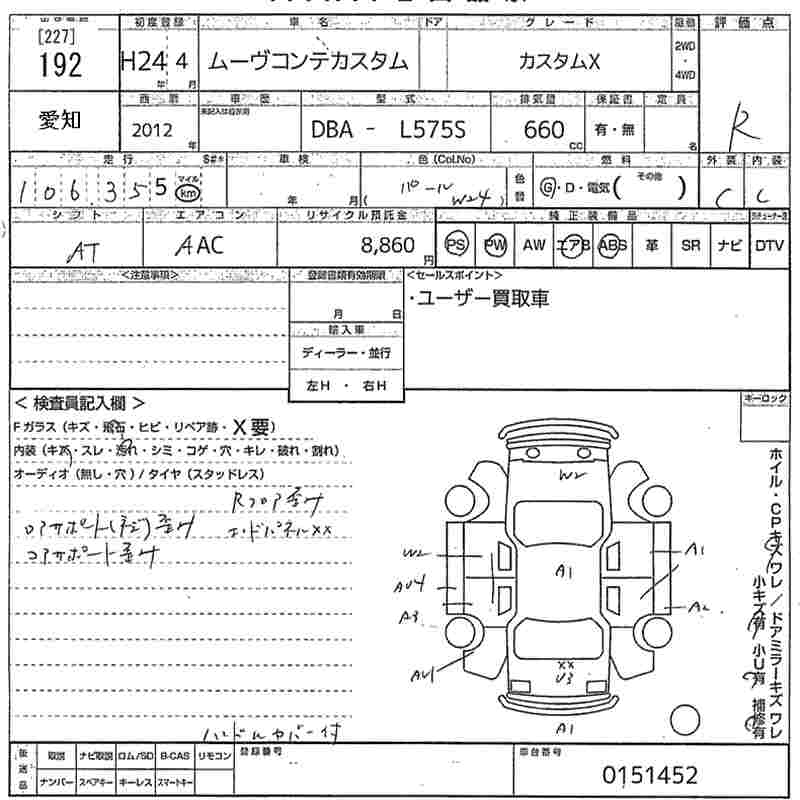 [227]
192
初度登録 車名 ドア グレード 評価点
H24 4
年 月
ムーヴコンテカスタム
カスタムX
2WD
・
4WD
愛知
西暦 車歴 型式 排気量 保証書 定員
未記入は自家用
2012 年
DBA - L575S
660 cc
有・無
名
R
走行 車検 色(Col.No) 燃料 外装 内装
106,355
マイル
km
年 月
パール
( W24 )
色替
G・D・電気( その他 )
C C
シフト エアコン リサイクル預託金 純正装備品
AT
AAC
8,860 円
PS PW AW エアB ABS 革 SR ナビ DTV
<注意事項> 登録書類有効期限 <セールスポイント>
月 日
・ユーザー買取車
輸入車
ディーラー・並行
左H ・ 右H
キーロック
< 検査員記入欄 >
Fガラス(キズ・飛石・ヒビ・リペア跡・X要)
内装(キズ・スレ・汚れ・シミ・コゲ・穴・キレ・破れ・割れ)
オーディオ(無し・穴)/タイヤ(スタッドレス)
Rフロア歪み
コアサポート(ネジ)歪み エンドパネルXX
コアサポート歪み
ハンドルカバー付
W2
W2
A1
AU4
A1
A3
A2
AU1
XX
U3
A1
ホイル・CPキズワレ/ドアミラーキズワレ
小キズ有 小U有 補修有
後送品
取説 ナビ取説 ロム/SD B-CAS リモコン
ナンバー スペアキー キーレス スマートキー
登録番号
車台番号
0151452